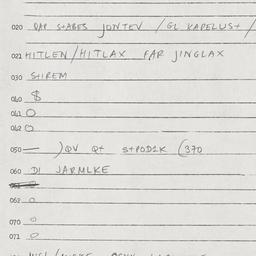 020 QAP STABES JONTEV / GL KAPELUST /
021 HITLEN / HITLAX FAR JINGLAX
030 STIREM
040 $
041 O
042 O
050 — ) QV Q+ STPODZK (370
060 DI JARMLKE
062 O
070 O
071 O